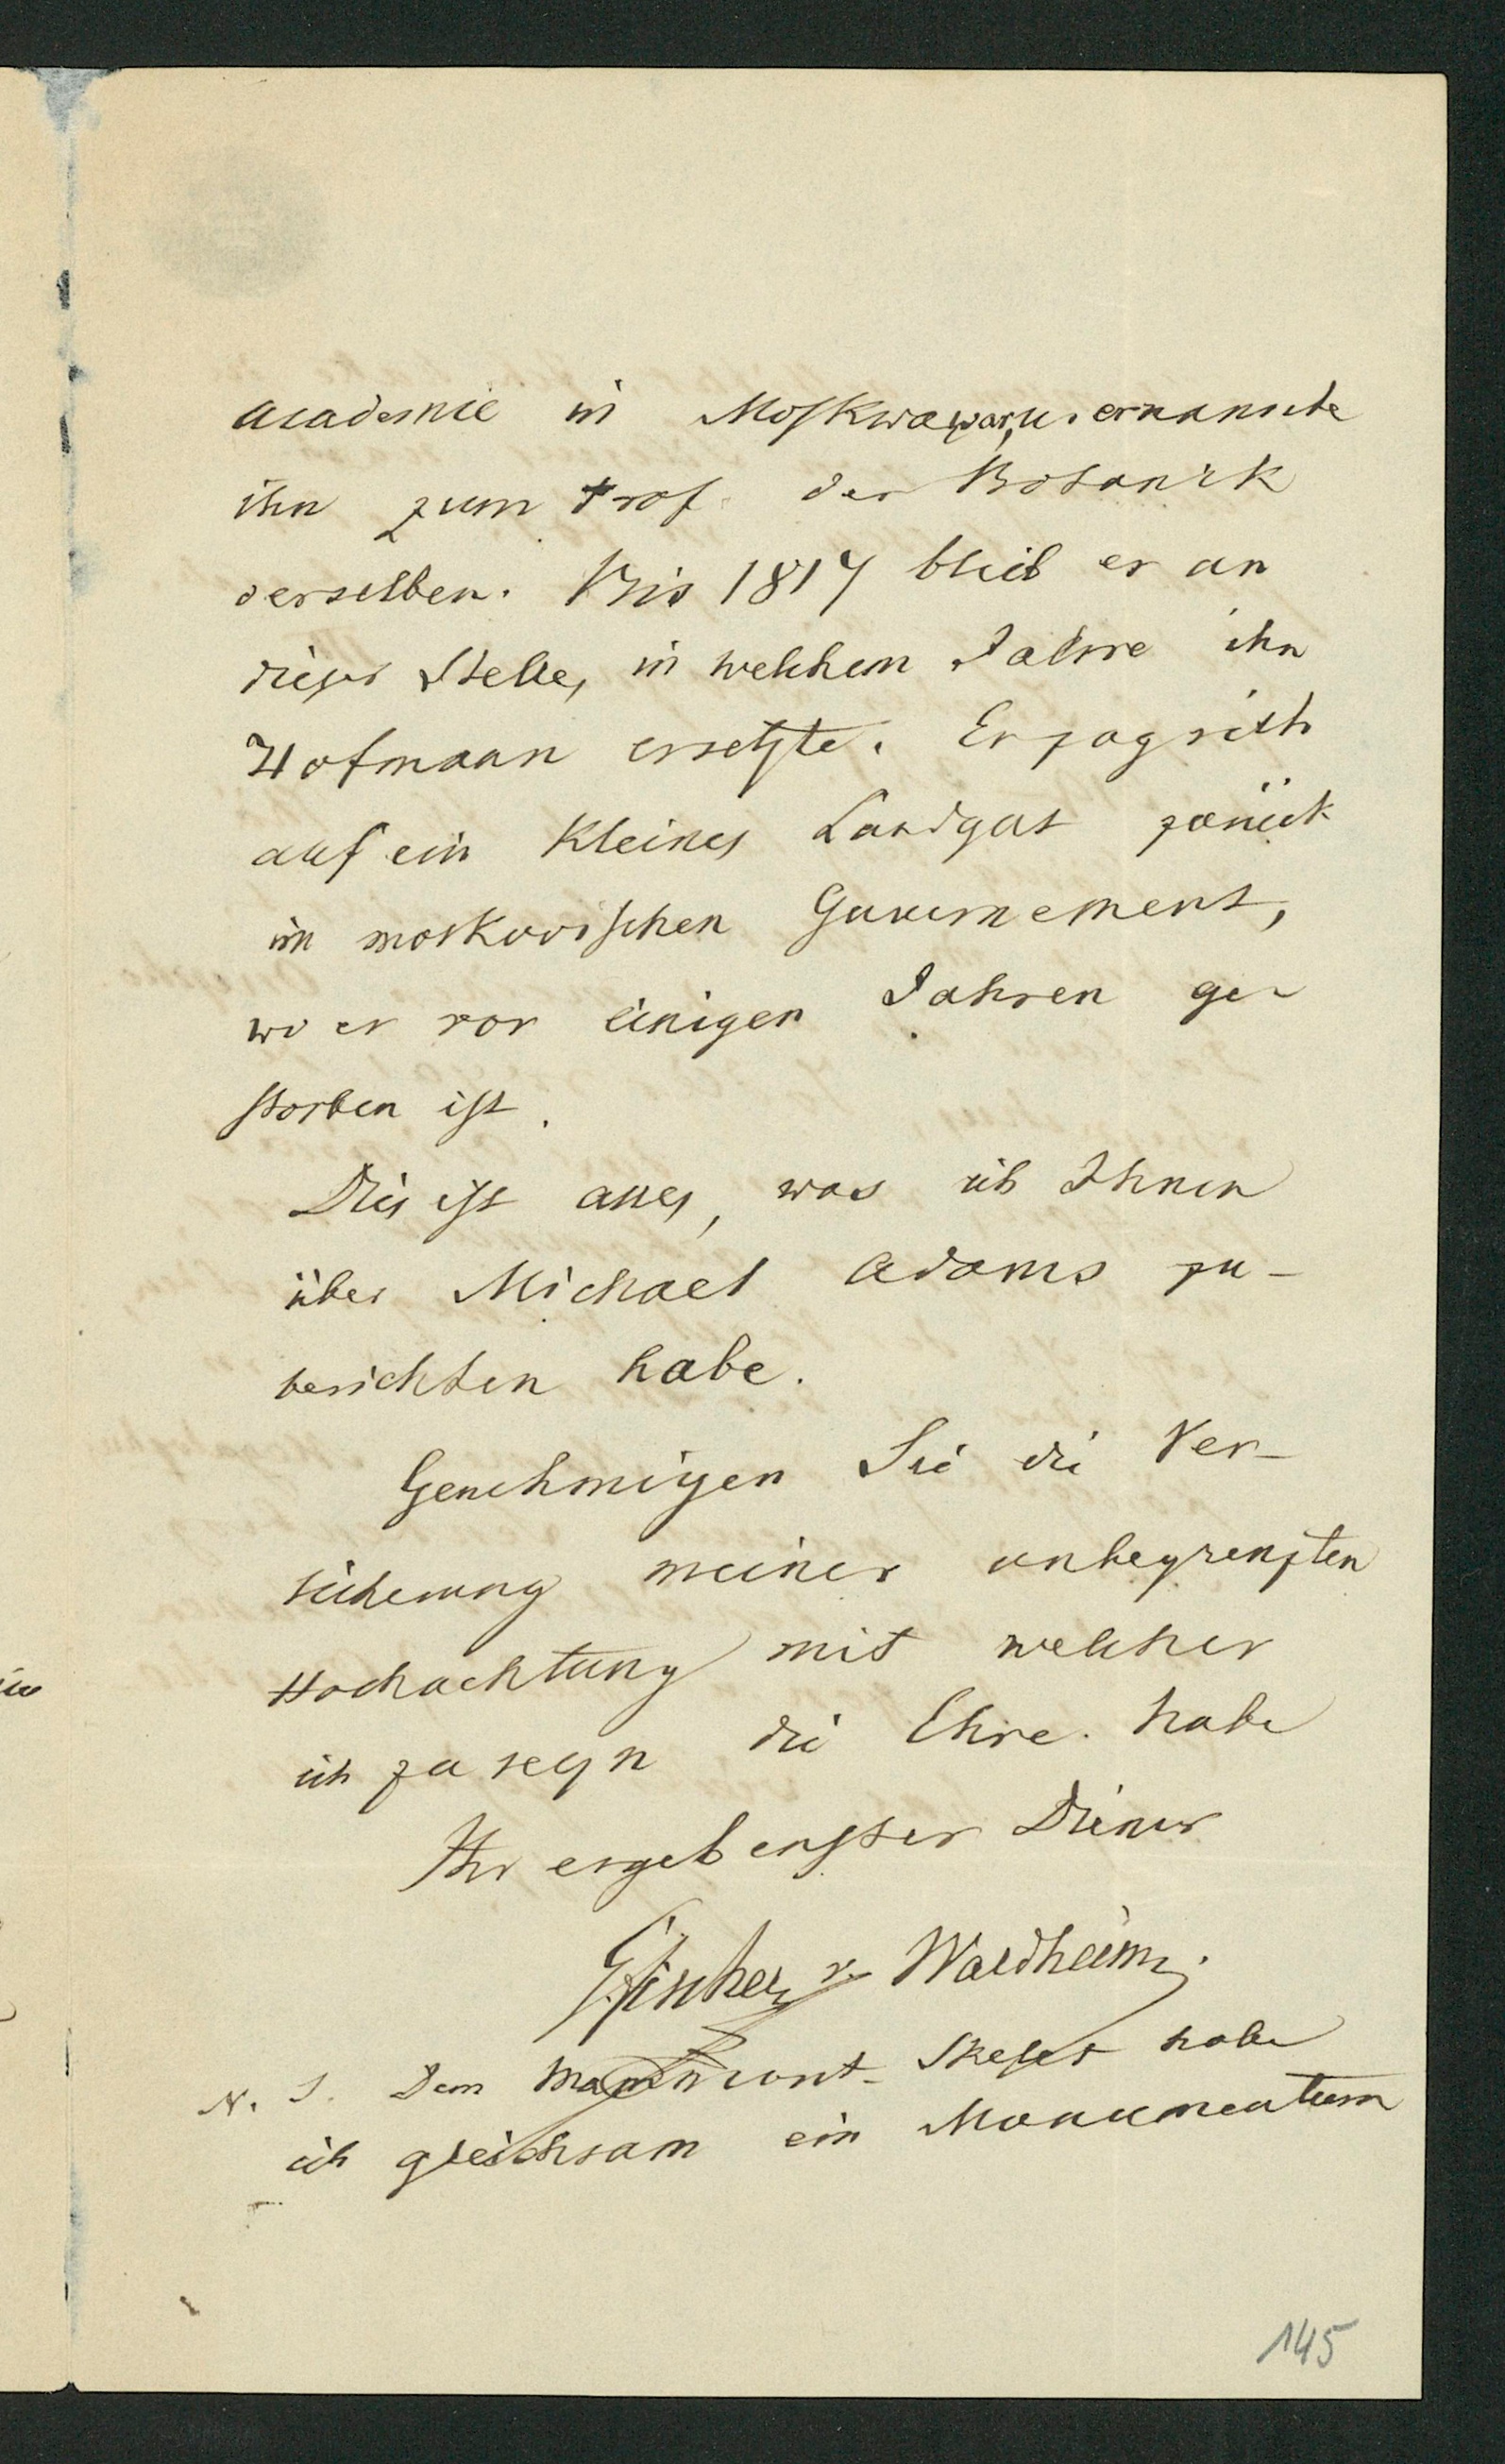 academie in Moskwa war, u. ernannte
ihn zum Prof. der Botanik
derselben. Bis 1817 blieb er an
dieser Stelle, in welchem Jahre ihn
Hofmann ersetzte. Er zog sich
auf ein kleines Landgut zurück
im moskovischen Guvernement,
wo er vor einigen Jahren ge-
storben ist.
Dies ist alles, was ich Ihnen
über Michael Adams zu-
berichten habe.
Genehmigen Sie die Ver-
sicherung meiner unbegrenzten
Hochachtung mit welcher
ich zu seyn die Ehre habe
Ihr ergebenster Diener
G. Fischer v. Waldheim.
N. S. Dem Mammont-Skelet habe
ich gleichsam ein Monumentum
145